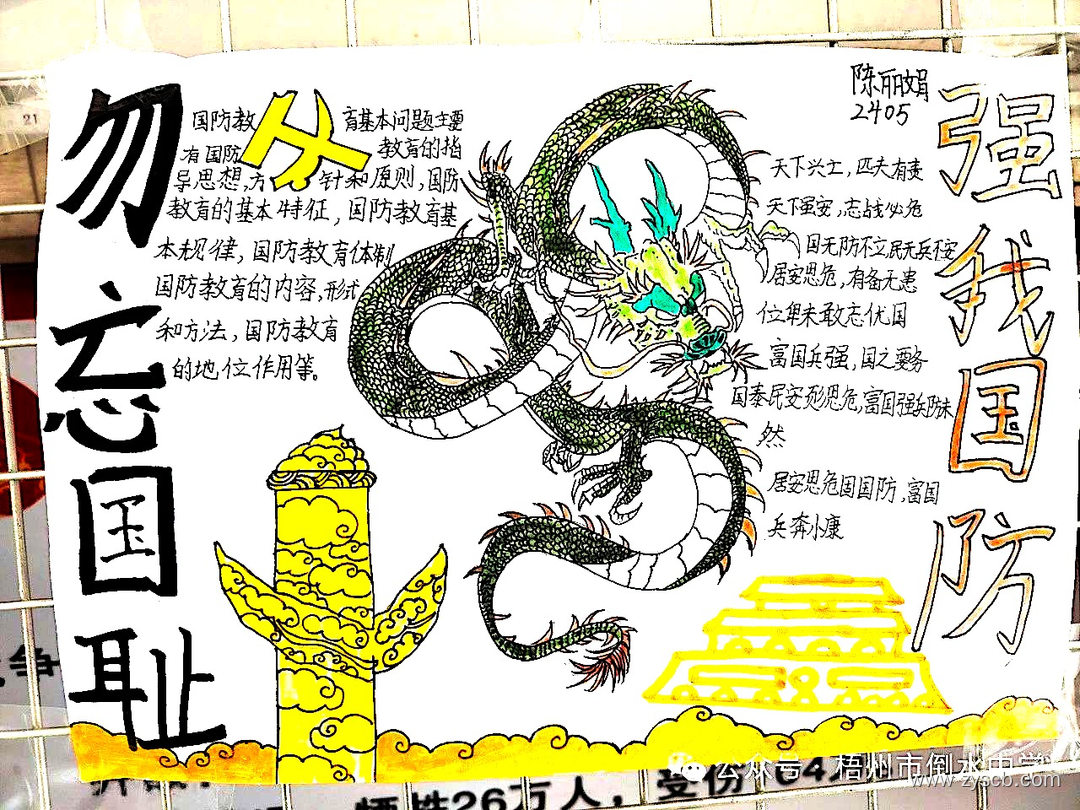 勿忘国耻
国防教育基本问题主要
有国防教育的指
导思想,方针和原则,国防
教育的基本特征,国防教育基
本规律,国防教育体制
国防教育的内容,形式
和方法,国防教育
的地位作用等。
陈丽娟
2405
天下兴亡,匹夫有责
天下虽安,忘战必危
国无防不立,民无兵不安
居安思危,有备无患
位卑未敢忘优国
富国兵强,国之要务
国泰民安须思危,富国强兵防未
然
居安思危固国防,富国
兵奔小康
强我国防
21
牺牲26万人,受伤64
公众号·梧州市倒水中学
www.zyscb.com